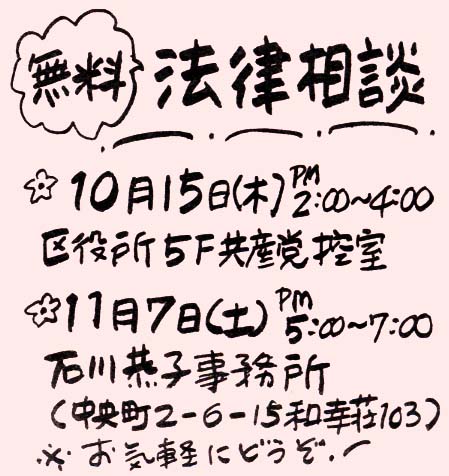 無料 法律相談
10月15日(木)PM2:00〜4:00
区役所5F共産党控室
11月7日(土)PM5:00〜7:00
石川恭子事務所
(中央町2-6-15和幸荘103)
※お気軽にどうぞ.